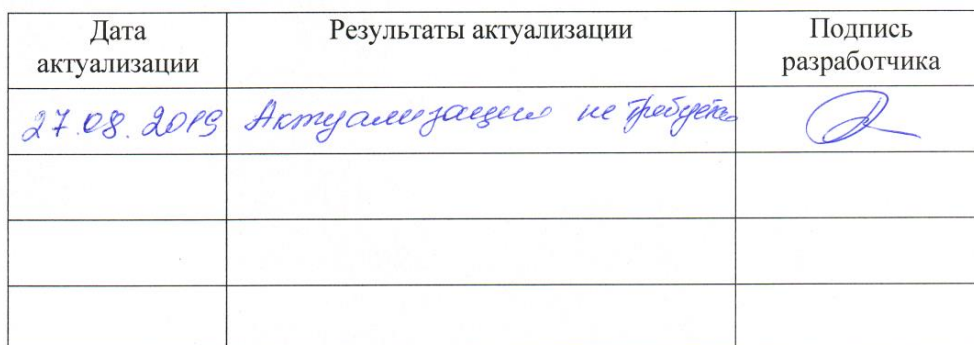 Дата актуализации
Результаты актуализации
Подпись разработчика
27.08.2019 Актуализация не требуется